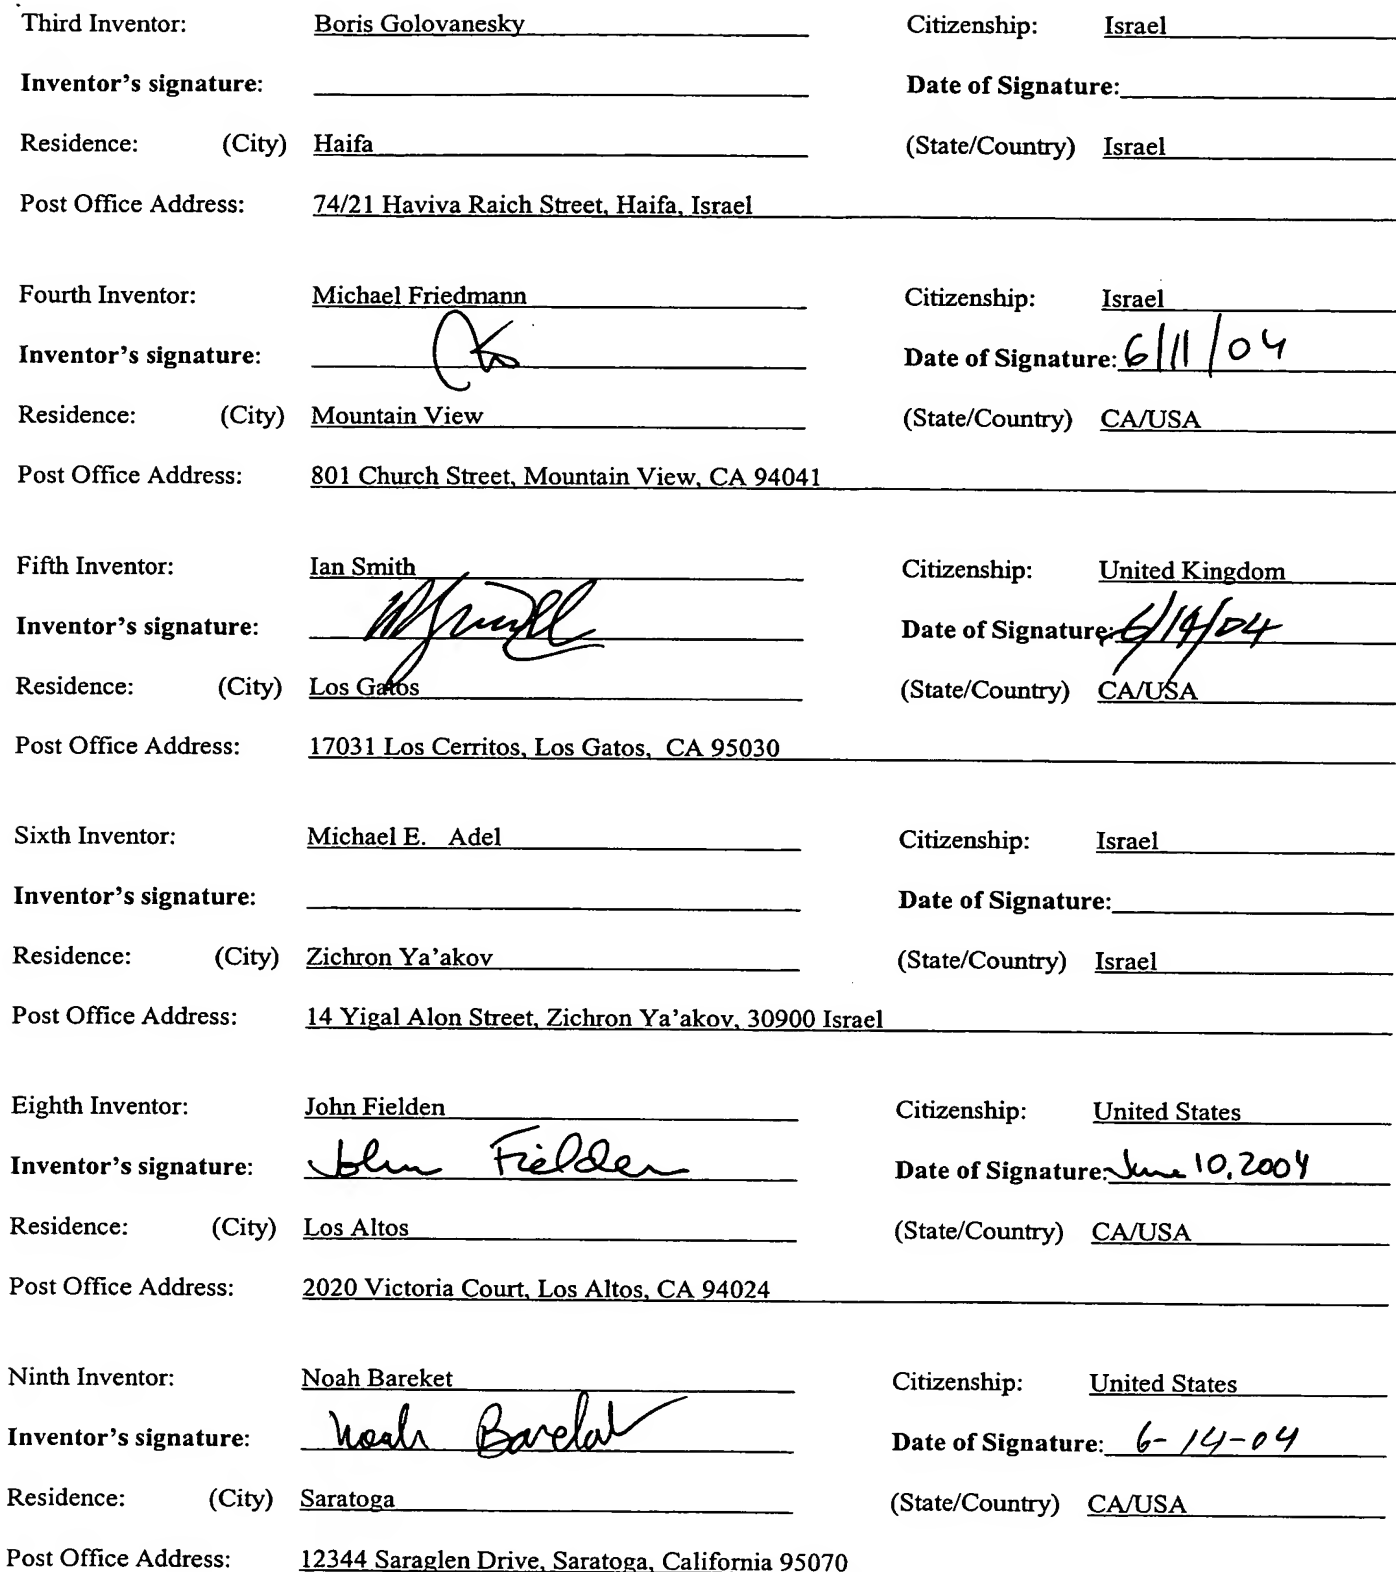 Third Inventor: Boris Golovanesky Citizenship: Israel
Inventor's signature: Date of Signature:
Residence: (City) Haifa (State/Country) Israel
Post Office Address: 74/21 Haviva Raich Street, Haifa, Israel
Fourth Inventor: Michael Friedmann Citizenship: Israel
Inventor's signature: Date of Signature: 6/11/04
Residence: (City) Mountain View (State/Country) CA/USA
Post Office Address: 801 Church Street, Mountain View, CA 94041
Fifth Inventor: Ian Smith Citizenship: United Kingdom
Inventor's signature: Date of Signature: 6/14/04
Residence: (City) Los Gatos (State/Country) CA/USA
Post Office Address: 17031 Los Cerritos, Los Gatos, CA 95030
Sixth Inventor: Michael E. Adel Citizenship: Israel
Inventor's signature: Date of Signature:
Residence: (City) Zichron Ya'akov (State/Country) Israel
Post Office Address: 14 Yigal Alon Street, Zichron Ya'akov, 30900 Israel
Eighth Inventor: John Fielden Citizenship: United States
Inventor's signature: John Fielden Date of Signature: June 10, 2004
Residence: (City) Los Altos (State/Country) CA/USA
Post Office Address: 2020 Victoria Court, Los Altos, CA 94024
Ninth Inventor: Noah Bareket Citizenship: United States
Inventor's signature: Noah Bareket Date of Signature: 6-14-04
Residence: (City) Saratoga (State/Country) CA/USA
Post Office Address: 12344 Saraglen Drive, Saratoga, California 95070